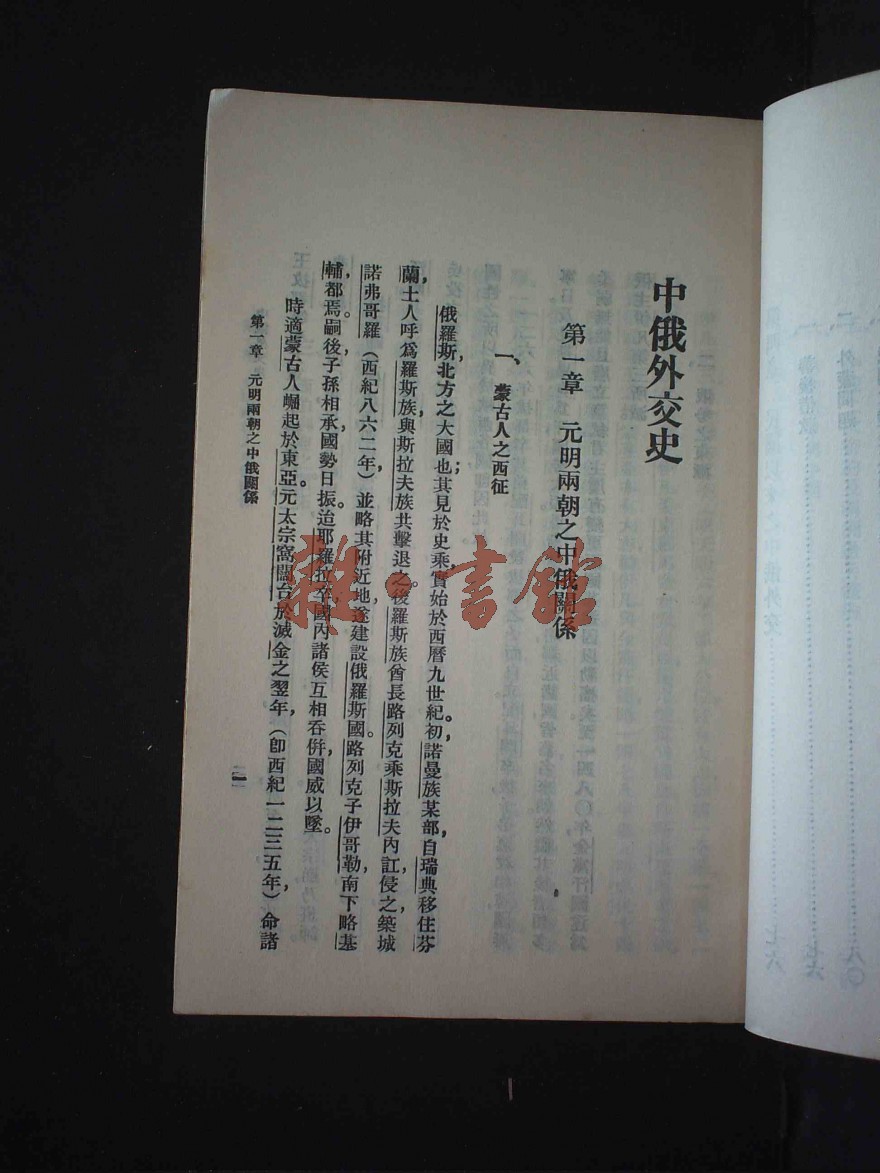 中俄外交史
第一章　元明兩朝之中俄關係
一、　蒙古人之西征
俄羅斯，北方之大國也；其見於史乘，實始於西曆九世紀。初，諾曼族某部，自瑞典移住芬
蘭，土人呼爲羅斯族，與斯拉夫族共擊退之。後羅斯族酋長路列克乘斯拉夫內訌，侵之，築城
諾弗哥羅（西紀八六二年）並略其附近地，遂建設俄羅斯國。路列克子伊哥勒，南下略基
輔，都焉。嗣後子孫相承，國勢日振。迨耶羅拉卒，國內諸侯互相吞併，國威以墜。
時適蒙古人崛起於東亞。元太宗窩闊台於滅金之翌年，（卽西紀一二三五年）命諸
第一章　元明兩朝之中俄關係
一
雜·書館